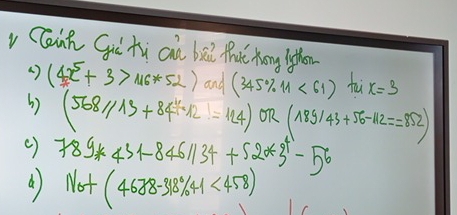 1/ Tính giá trị của biểu thức trong Python
a) (4x⁵ + 3 > 46*52) and (345%11 < 61) tại x=3
b) (568//13 + 84*12 != 124) OR (189/43+56-112==852)
c) 789**431-846//34 + 520*3⁴ - 5⁶
d) Not (4678-318%41 < 458)